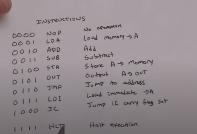 INSTRUCTIONS
0000 NOP No operation
0001 LDA Load memory → A
0010 ADD Add
0011 SUB Subtract
0100 STA Store A → memory
0101 OUT Output A → OUT
0110 JMP Jump to address
0111 LDI Load immediate → A
1000 JC Jump if carry flag set
1111 HLT Halt execution